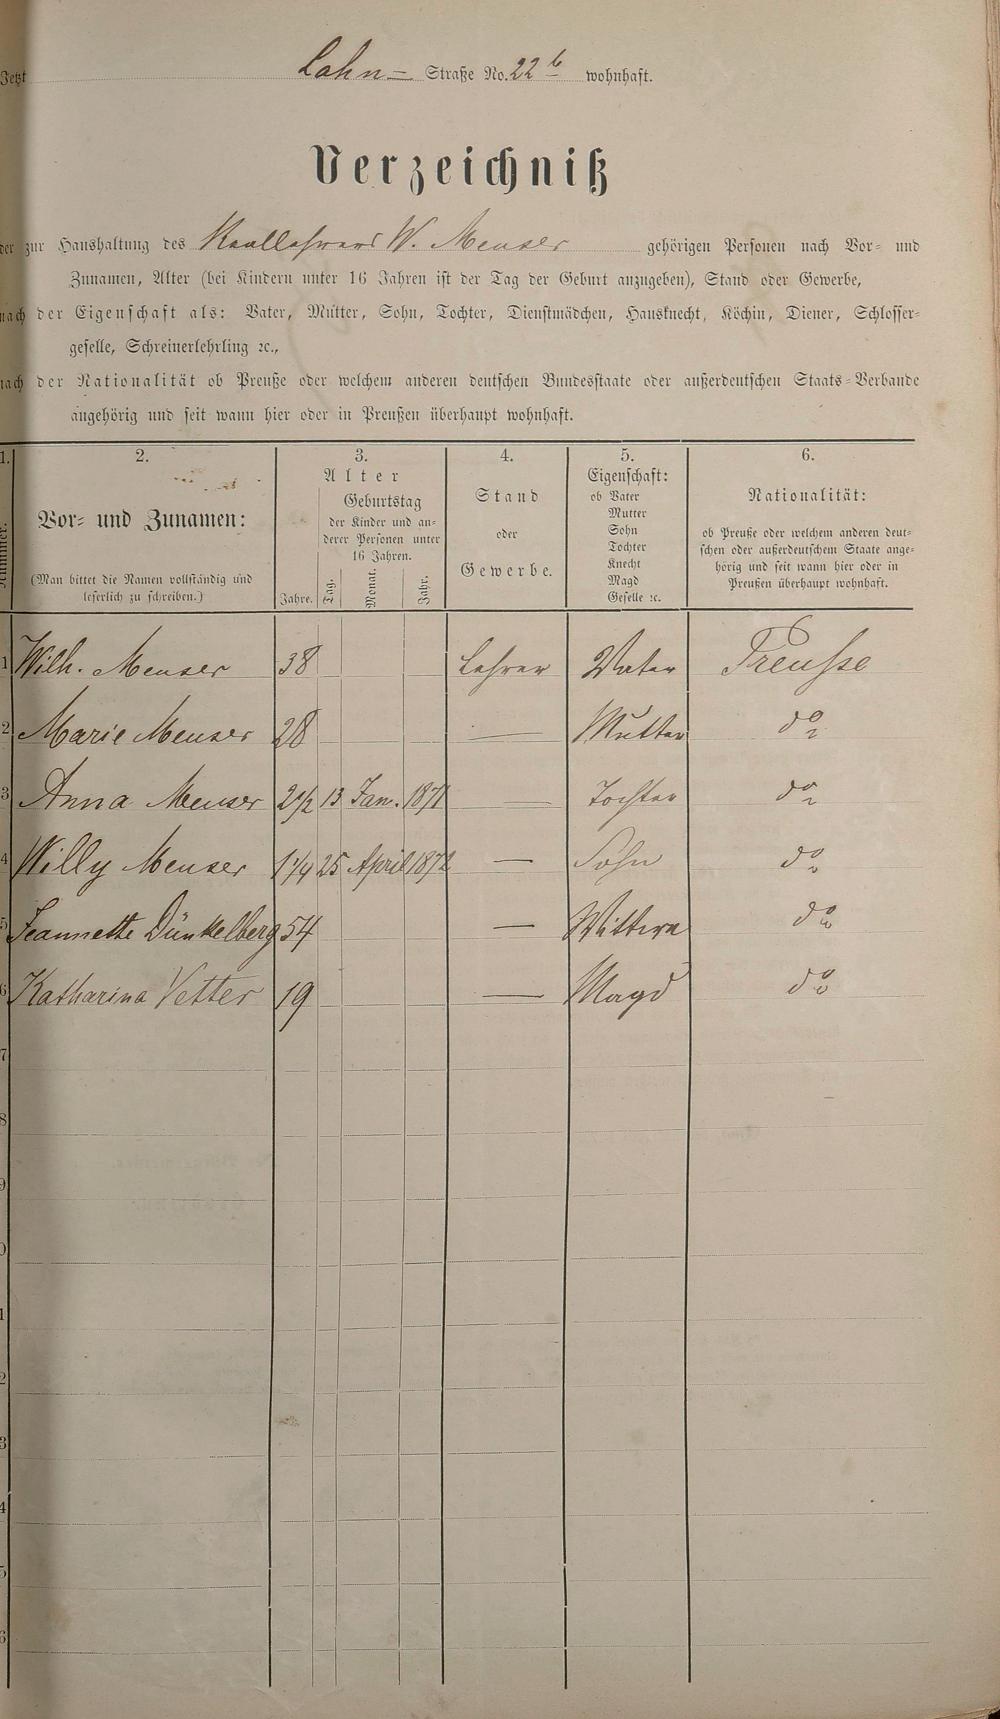 Jetzt Lahn- Straße No. 22 b wohnhaft.
Verzeichniß
der zur Haushaltung des Reallehrers W. Menser gehörigen Personen nach Vor- und
Zunamen, Alter (bei Kindern unter 16 Jahren ist der Tag der Geburt anzugeben), Stand oder Gewerbe,
nach der Eigenschaft als: Vater, Mutter, Sohn, Tochter, Dienstmädchen, Hausknecht, Köchin, Diener, Schlosser-
geselle, Schreinerlehrling ꝛc.,
nach der Nationalität ob Preuße oder welchem anderen deutschen Bundesstaate oder außerdeutschen Staats-Verbande
angehörig und seit wann hier oder in Preußen überhaupt wohnhaft.
1. 2. 3. 4. 5. 6.
Nummer.
Vor- und Zunamen:
(Man bittet die Namen vollständig und
leserlich zu schreiben.)
Alter
Jahre.
Geburtstag
der Kinder und an-
derer Personen unter
16 Jahren.
Tag. Monat. Jahr.
Stand
oder
Gewerbe.
Eigenschaft:
ob Vater
Mutter
Sohn
Tochter
Knecht
Magd
Geselle ꝛc.
Nationalität:
ob Preuße oder welchem anderen deut-
schen oder außerdeutschem Staate ange-
hörig und seit wann hier oder in
Preußen überhaupt wohnhaft.
1 Wilh. Menser 38 Lehrer Vater Preusse
2 Marie Menser 28 — Mutter do
3 Anna Menser 2½ 13 Jan. 1871 — Tochter do
4 Willy Menser 1¼ 25 April 1872 — Sohn do
5 Jeannette Dünkelberg 54 — Wittwe do
6 Katharina Vetter 19 — Magd do
7
8
9
0
1
2
3
4
5
6